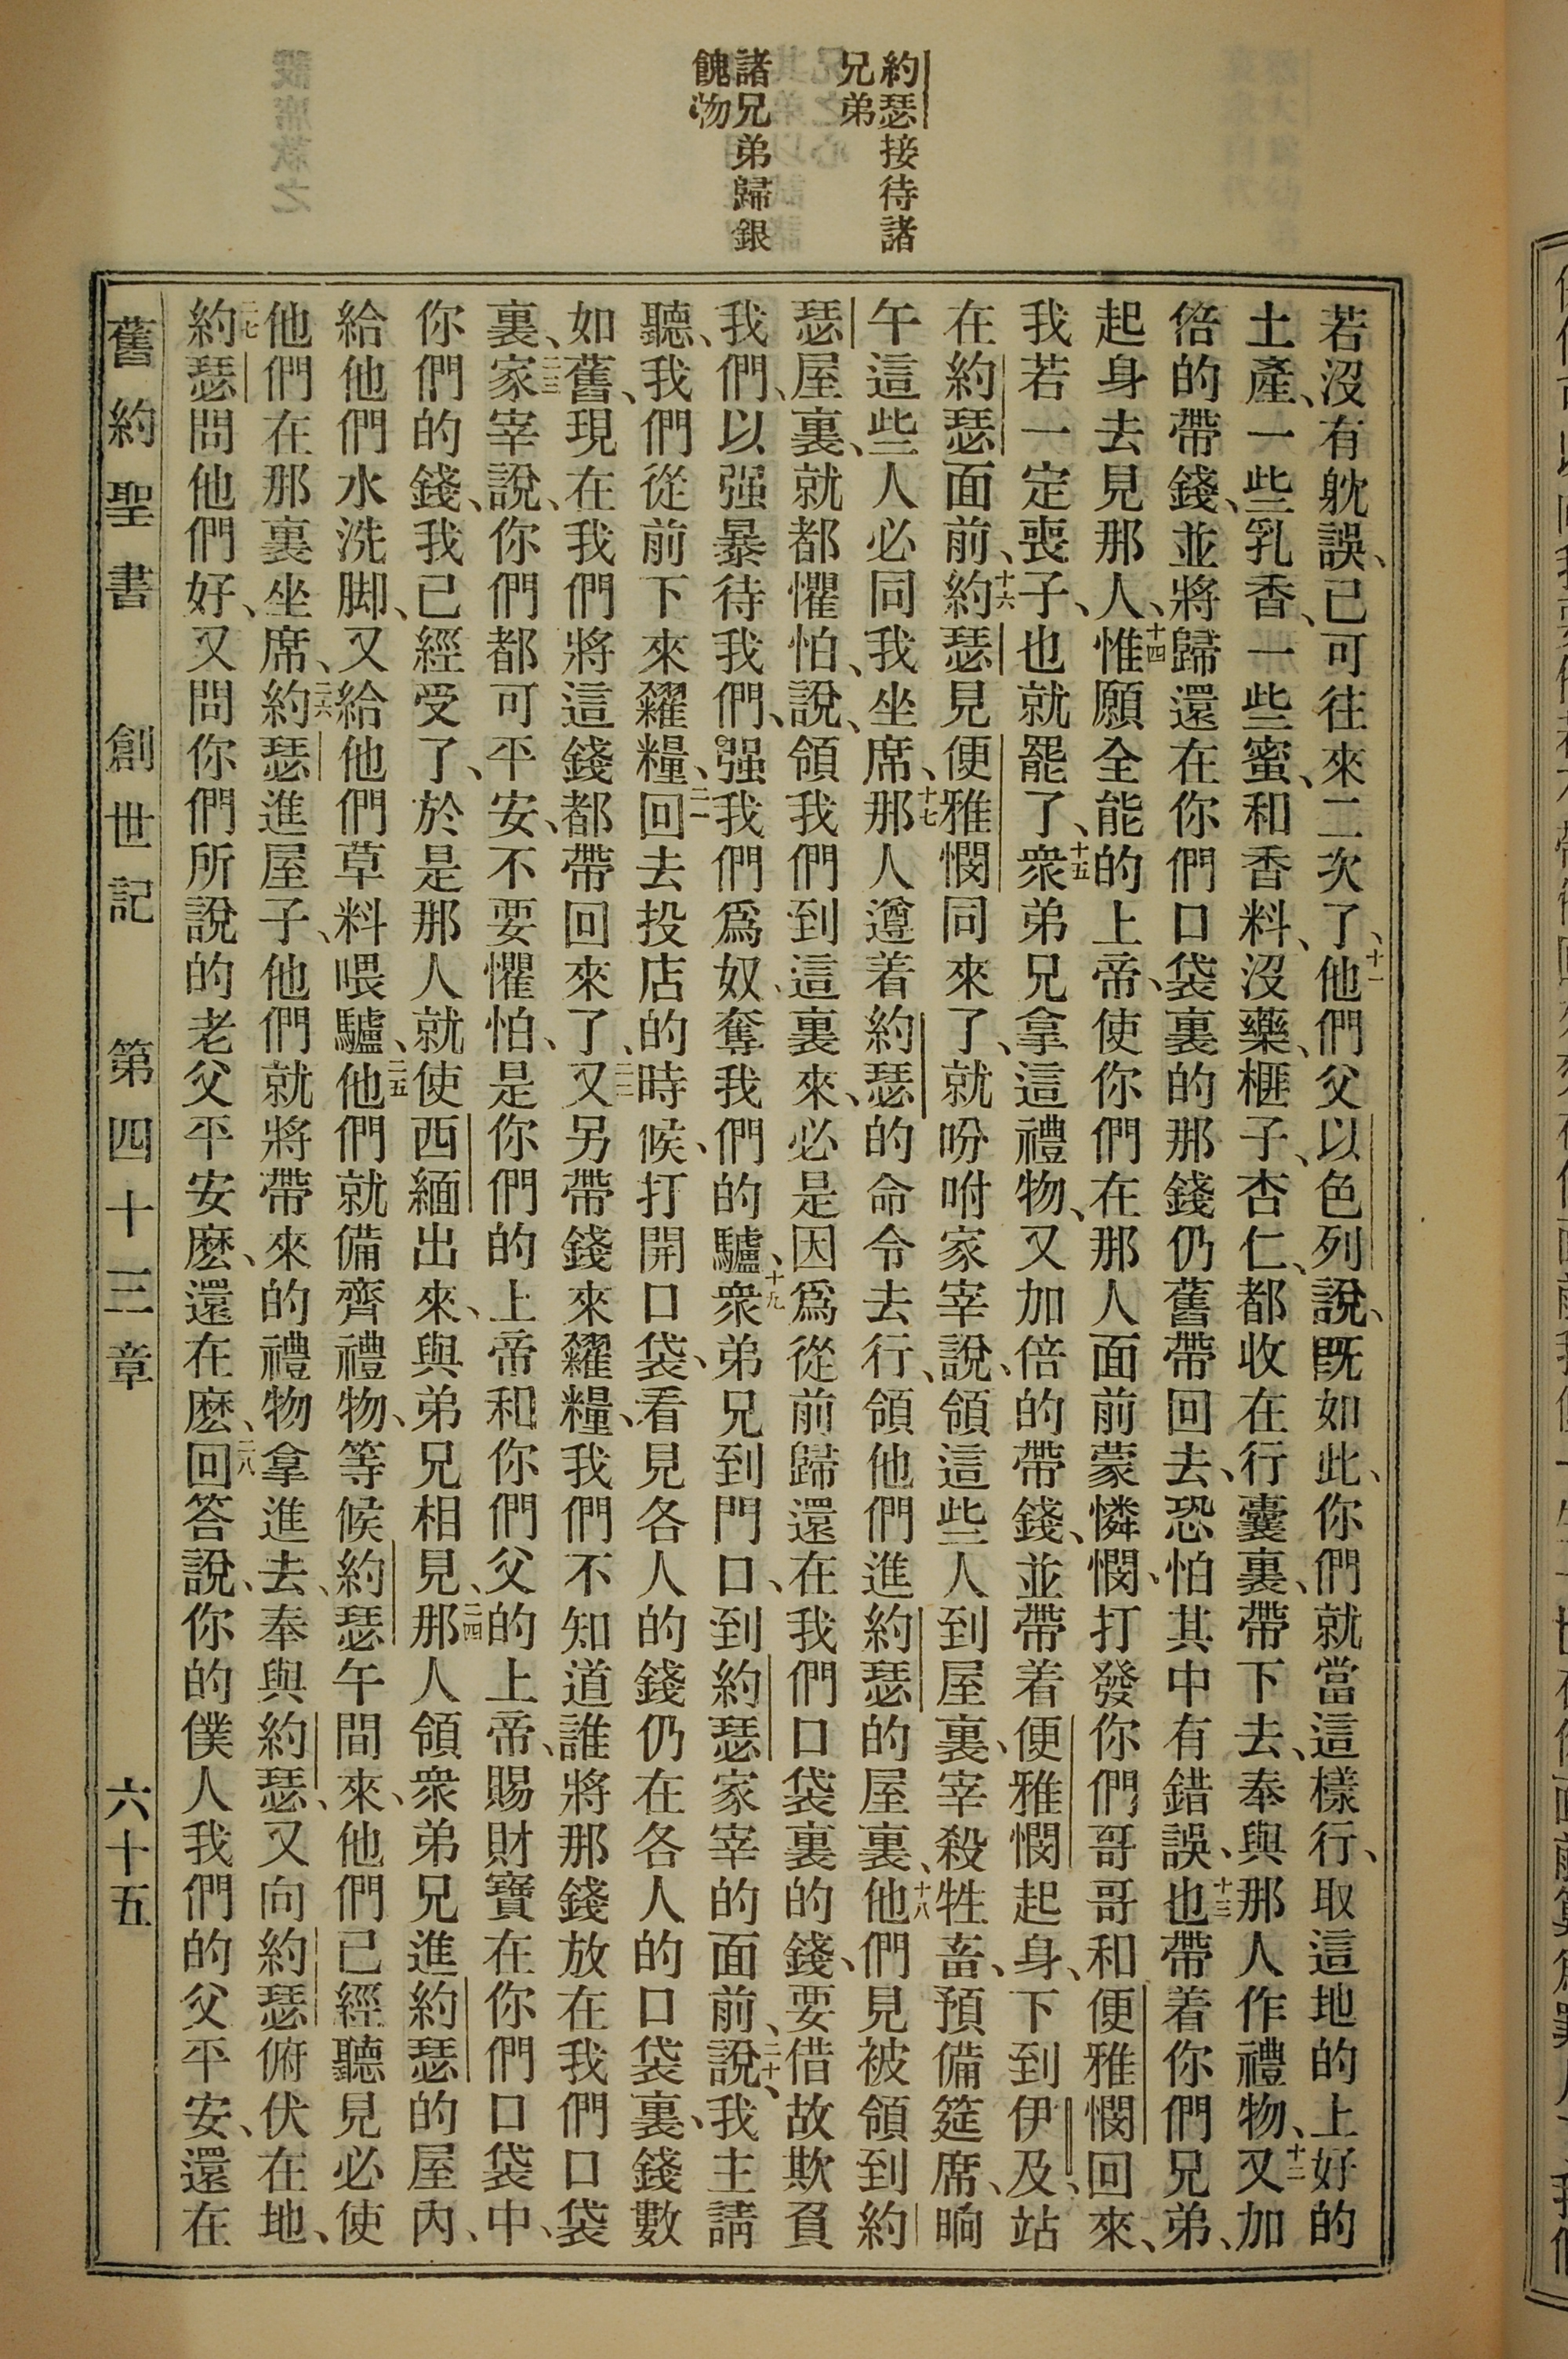 約瑟接待諸
兄弟
諸兄弟歸銀
餽物
若沒有躭誤、已可往來二次了、十一他們父以色列說、既如此、你們就當這樣行、取這地的上好的
土產、一些乳香、一些蜜、和香料、沒藥、榧子、杏仁、都收在行囊裏、帶下去、奉與那人作禮物、十二又加
倍的帶錢、並將歸還在你們口袋裏的那錢仍舊帶回去、恐怕其中有錯誤、十三也帶着你們兄弟、
起身去見那人、十四惟願全能的上帝、使你們在那人面前蒙憐憫、打發你們哥哥和便雅憫回來、
我若一定喪子、也就罷了、十五衆弟兄拿這禮物、又加倍的帶錢、並帶着便雅憫起身、下到伊及、站
在約瑟面前、十六約瑟見便雅憫同來了、就吩咐家宰說、領這些人到屋裏、宰殺牲畜、預備筵席、晌
午這些人必同我坐席、十七那人遵着約瑟的命令去行、領他們進約瑟的屋裏、十八他們見被領到約
瑟屋裏、就都懼怕、說、領我們到這裏來、必是因爲從前歸還在我們口袋裏的錢、要借故欺負
我們、以强暴待我們、强我們爲奴、奪我們的驢、十九衆弟兄到門口、到約瑟家宰的面前、二十說、我主請
聽、我們從前下來糴糧、二一回去投店的時候、打開口袋、看見各人的錢仍在各人的口袋裏、錢數
如舊、現在我們將這錢都帶回來了、二二又另帶錢來糴糧、我們不知道誰將那錢放在我們口袋
裏、二三家宰說、你們都可平安、不要懼怕、是你們的上帝和你們父的上帝、賜財寶在你們口袋中、
你們的錢、我已經受了、於是那人就使西緬出來、與弟兄相見、二四那人領衆弟兄進約瑟的屋內、
給他們水洗脚、又給他們草料喂驢、二五他們就備齊禮物、等候約瑟午間來、他們已經聽見必使
他們在那裏坐席、二六約瑟進屋子、他們就將帶來的禮物拿進去、奉與約瑟、又向約瑟俯伏在地、
二七約瑟問他們好、又問你們所說的老父平安麼、還在麼、二八回答說、你的僕人我們的父平安、還在
舊約聖書 創世記 第四十三章 六十五